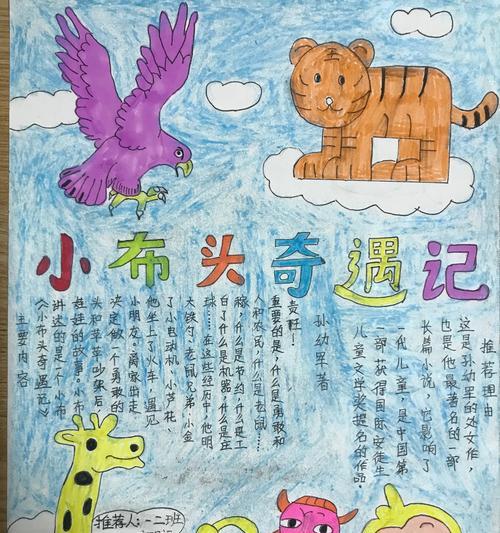 小布头奇遇记
主要内容
《小布头奇遇记》
讲述的是一个小布
娃娃的故事。小布
头和苹苹吵架后
决定做一个勇敢的
小朋友。离家出走
他坐上了火车,遇见
了小电动机、小芦花、
大铁勺、老鼠兄弟、小金
球……在这些经历中,他明
白了什么是机器,什么是庄
稼,什么是节约,什么是工
人和农民,什么是老鼠……
重要的是,什么是勇敢和
责任!
孙幼军著
推荐理由
这是孙幼军的处女作,
也是他最著名的一部
长篇小说,它影响了
一代儿童,是中国第
一部获得国际安徒生
儿童文学奖提名的作品。
推荐人:一二班